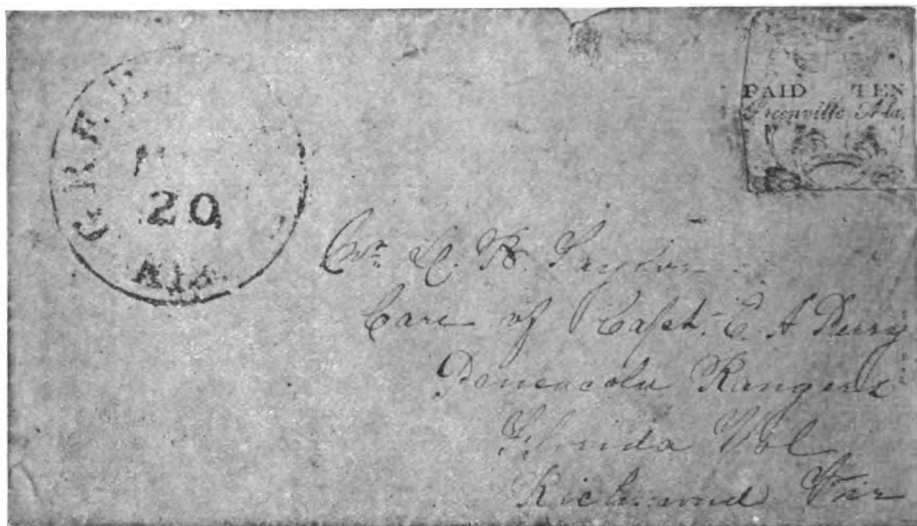 GREE
20
ALA
PAID TEN
Greenville Ala.
Taylor
Care of Capt. E. A Perry
Pensacola Rangers
Florida Vol
Richmond Vir